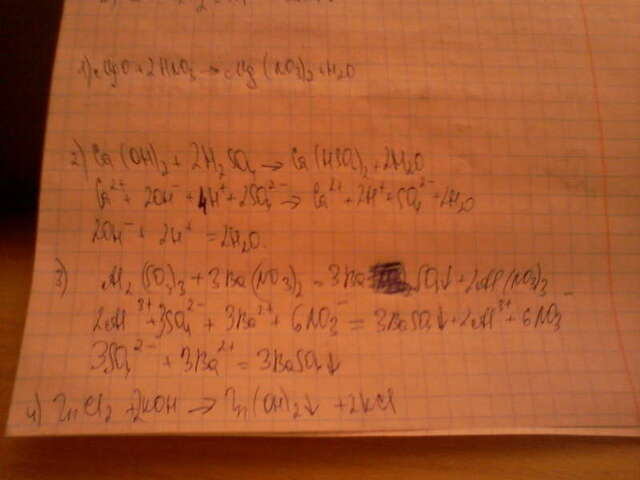 1) MgO + 2HNO3 → Mg(NO3)2 + H2O
2) Ca(OH)2 + 2H2SO4 → Ca(HSO4)2 + 2H2O
Ca²⁺ + 2OH⁻ + 4H⁺ + 2SO4²⁻ → Ca²⁺ + 2H⁺ + SO4²⁻ + 2H2O
2OH⁻ + 2H⁺ = 2H2O.
3) Al2(SO4)3 + 3Ba(NO3)2 = 3BaSO4↓ + 2Al(NO3)3
2Al³⁺ + 3SO4²⁻ + 3Ba²⁺ + 6NO3⁻ = 3BaSO4↓ + 2Al³⁺ + 6NO3⁻
3SO4²⁻ + 3Ba²⁺ = 3BaSO4↓
4) ZnCl2 + 2KOH → Zn(OH)2↓ + 2KCl